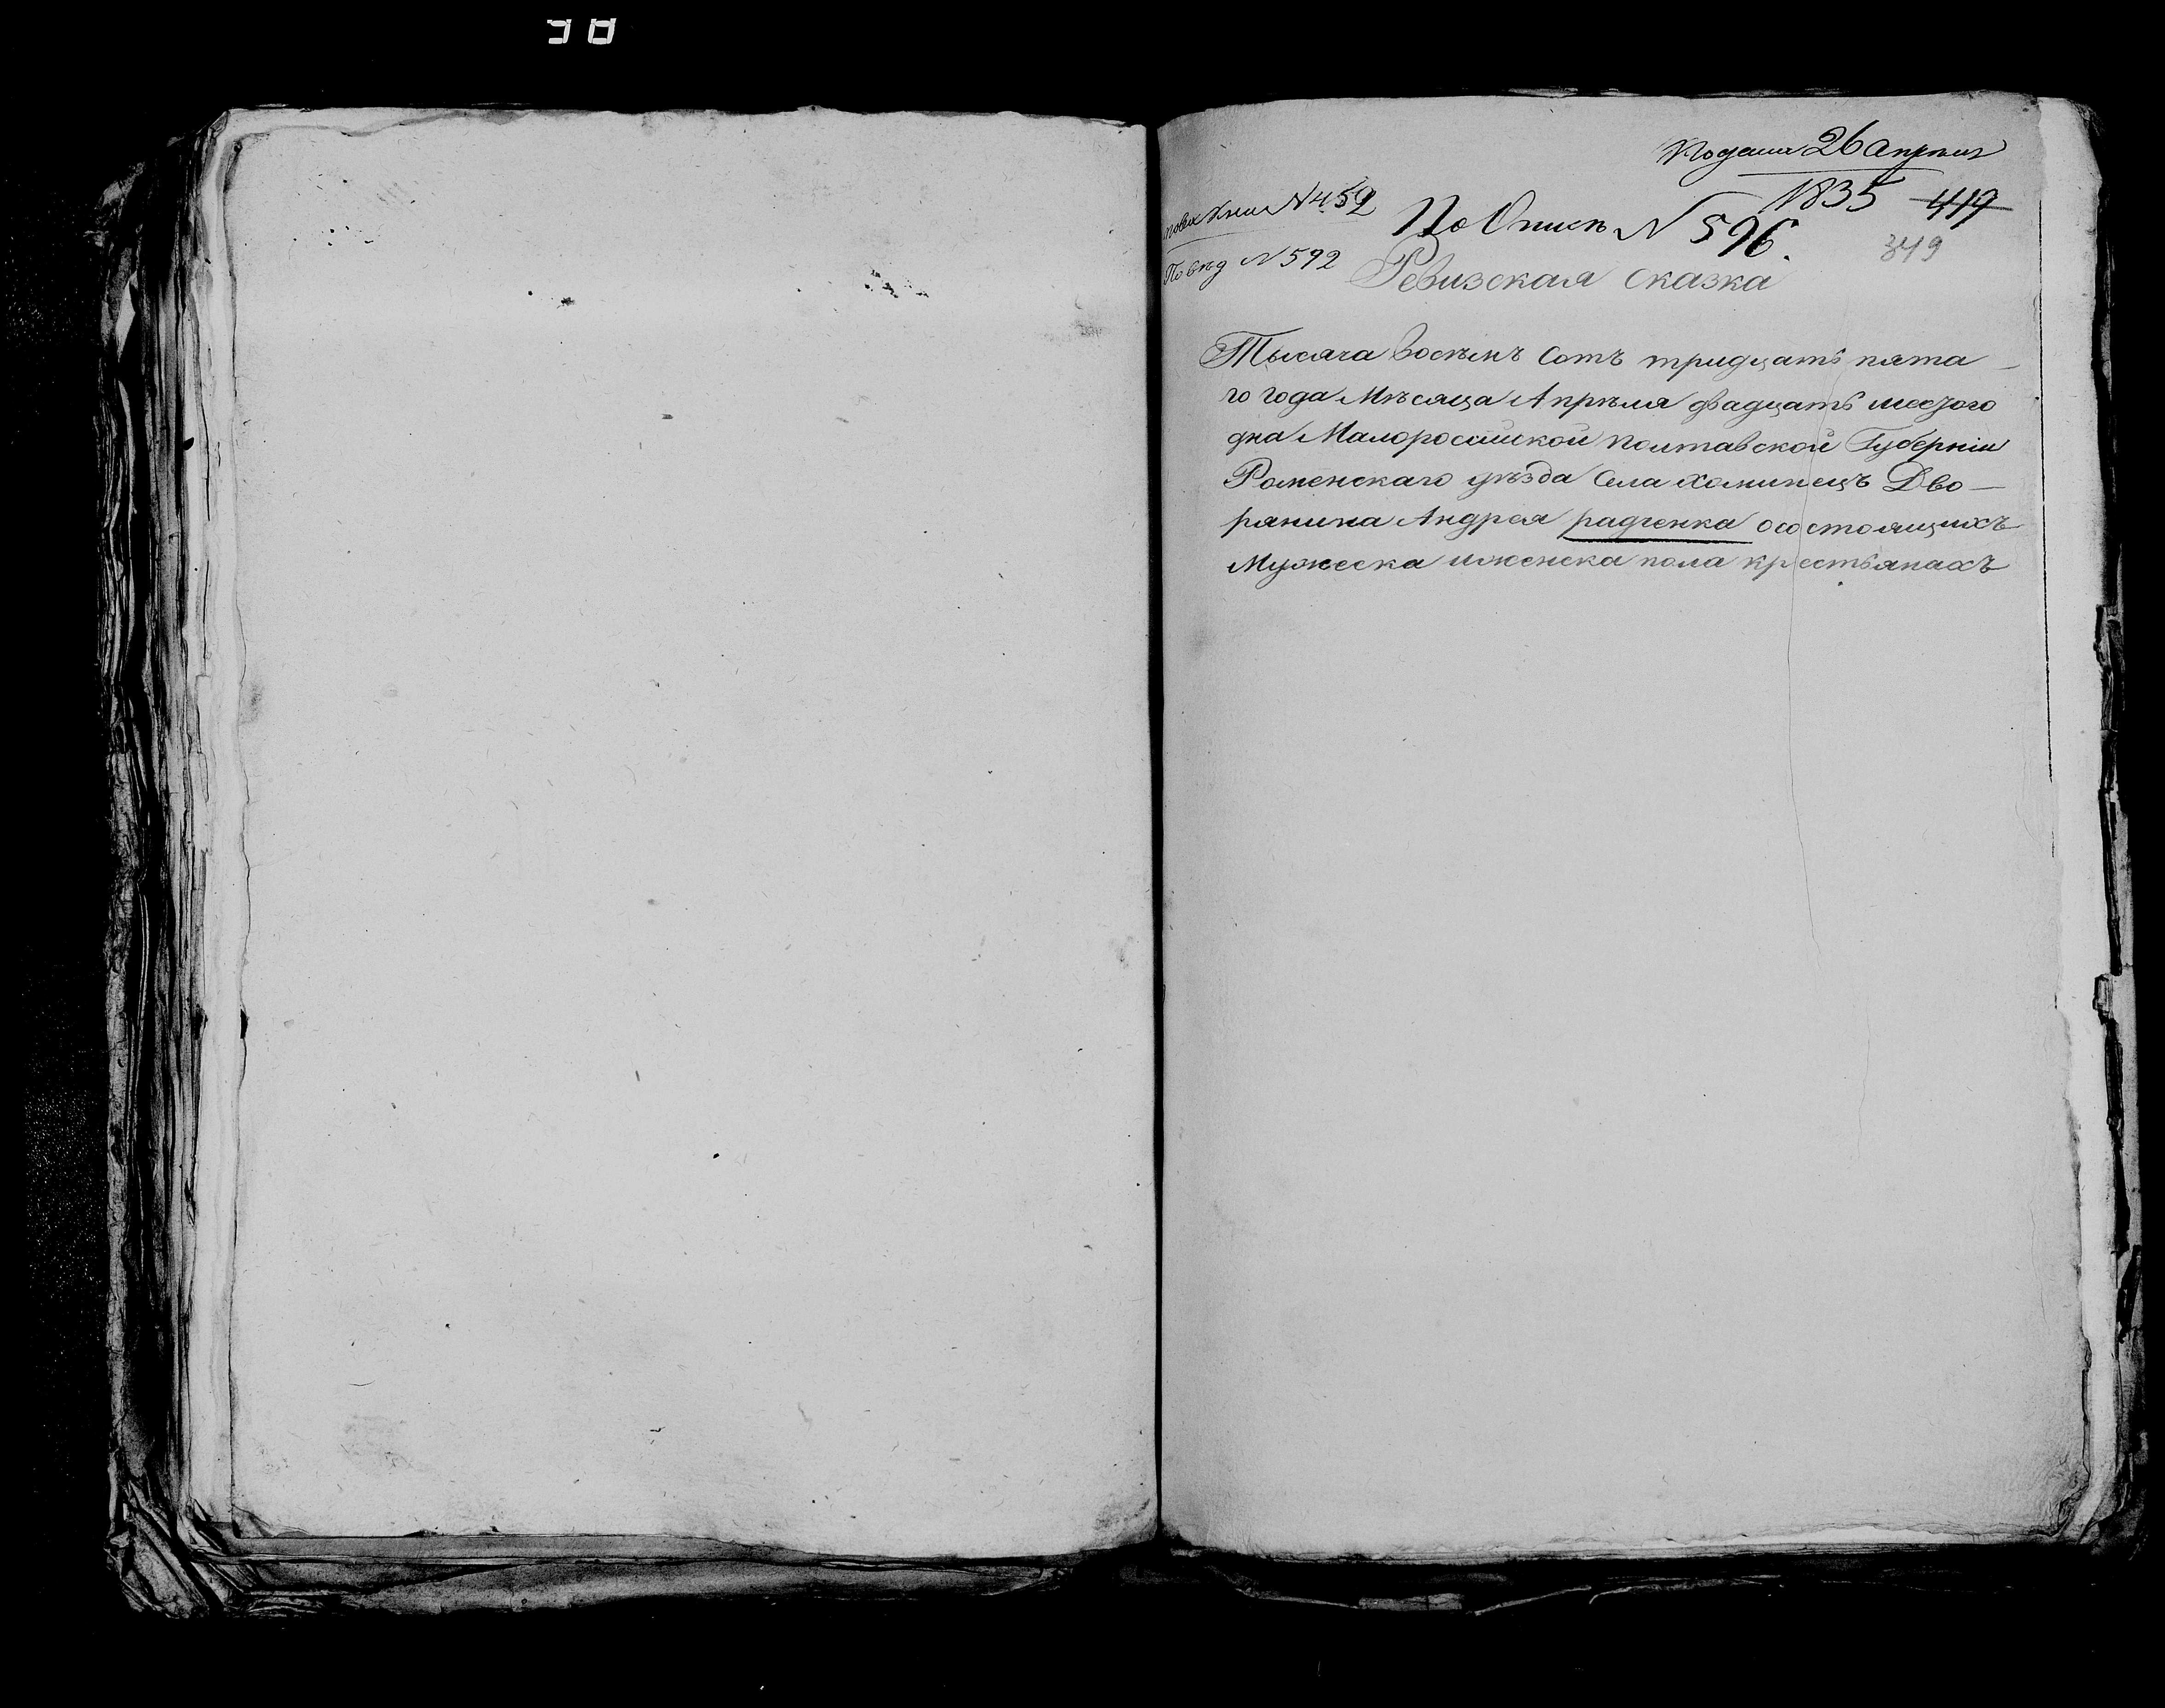 Подана 26 апреля
1835 419
349
новая книга N 459
По Описи N 596.
По вед N 592
Ревизская сказка
Тысяча восѣмъ сотъ тридцать пята
го года Мѣсяца Апрѣля двадцать шестого
дна Малоросийской Полтавской Губерніи
Роменскаго уѣзда Села хоминецъ Дво-
рянина Андрея радченка осостоящихъ
Мужеска иженска пола крестьянахъ